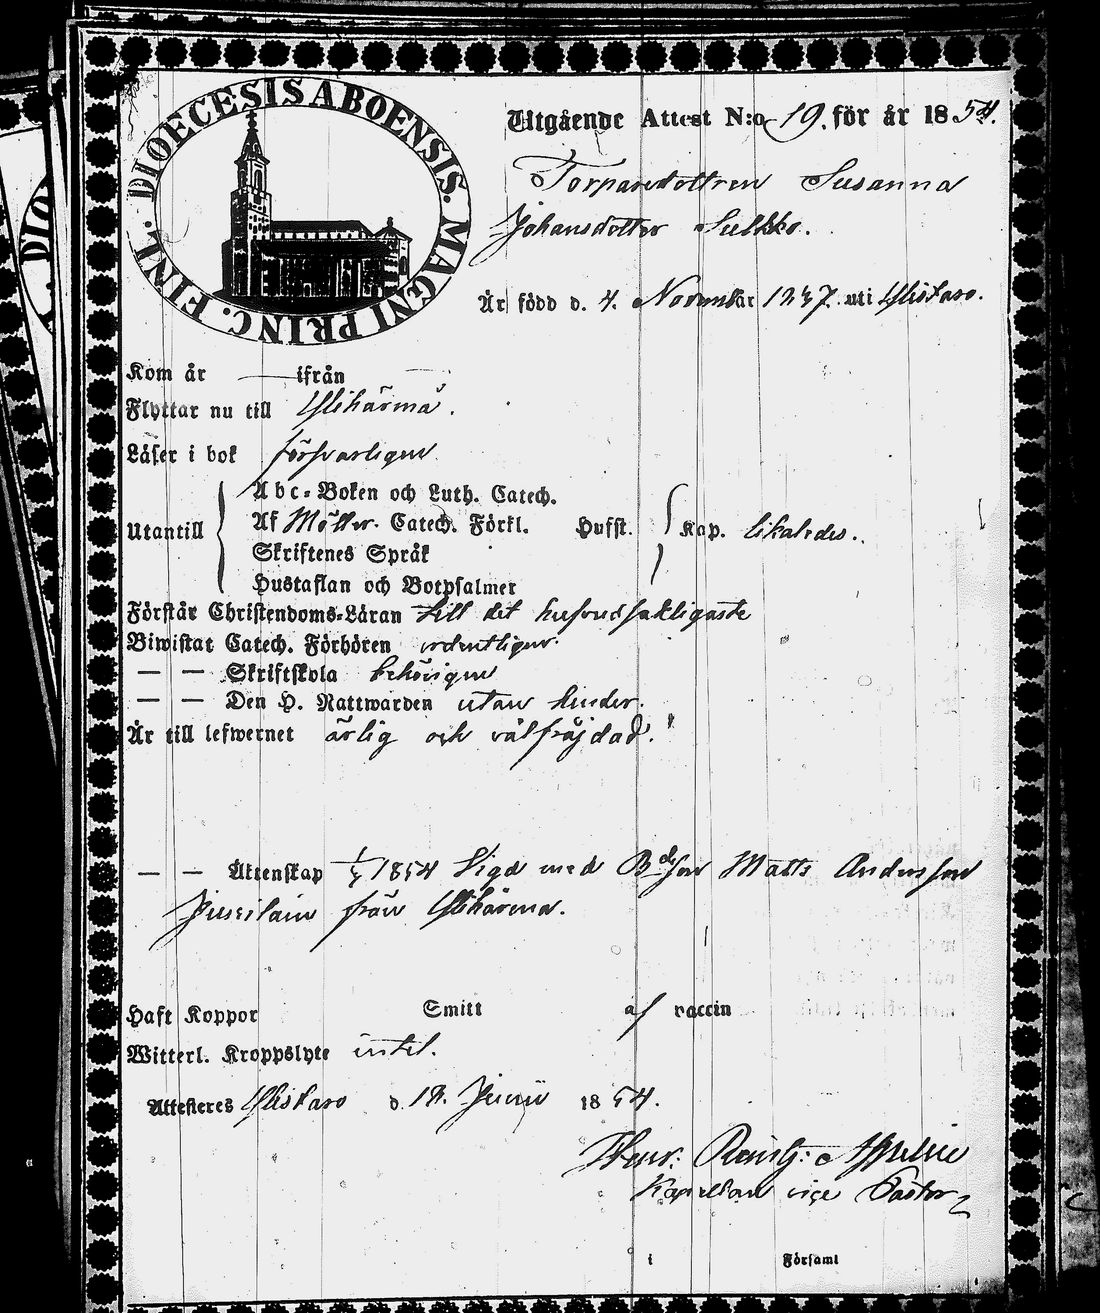 DIOECESIS ABOENSIS. MAGNI PRINC. FINL.
Utgående Attest N:o 19. för år 1854.
Torparedottren Susanna
Johansdotter Sulkko.
Är född d. 4. November 1837 uti Ylistaro.
Kom år — ifrån —
Flyttar nu till Ylihärmä.
Läser i bok försvarligen
Abc-Boken och Luth. Catech.
Utantill Af Catech. Förkl. Husst. Kap. likaledes.
Skriftenes Språk
Hustaflan och Botpsalmer
Förstår Christendoms-Läran till det hufvudsakligaste
Biwistat Catech. Förhören ordentligen
— — Skriftskola behörigen
— — Den H. Nattwarden utan hinder.
Är till lefwernet ärlig och välfräjdad.
— — Äktenskap 1854 Vigd med Bdeson Matts Andersson
från Ylihärmä.
Haft Koppor Smitt af vaccin
Witterl. Kroppslyte intet.
Attesteres Ylistaro d. 18. Junii 1854.
Kapellan vice Pastor
i Församl